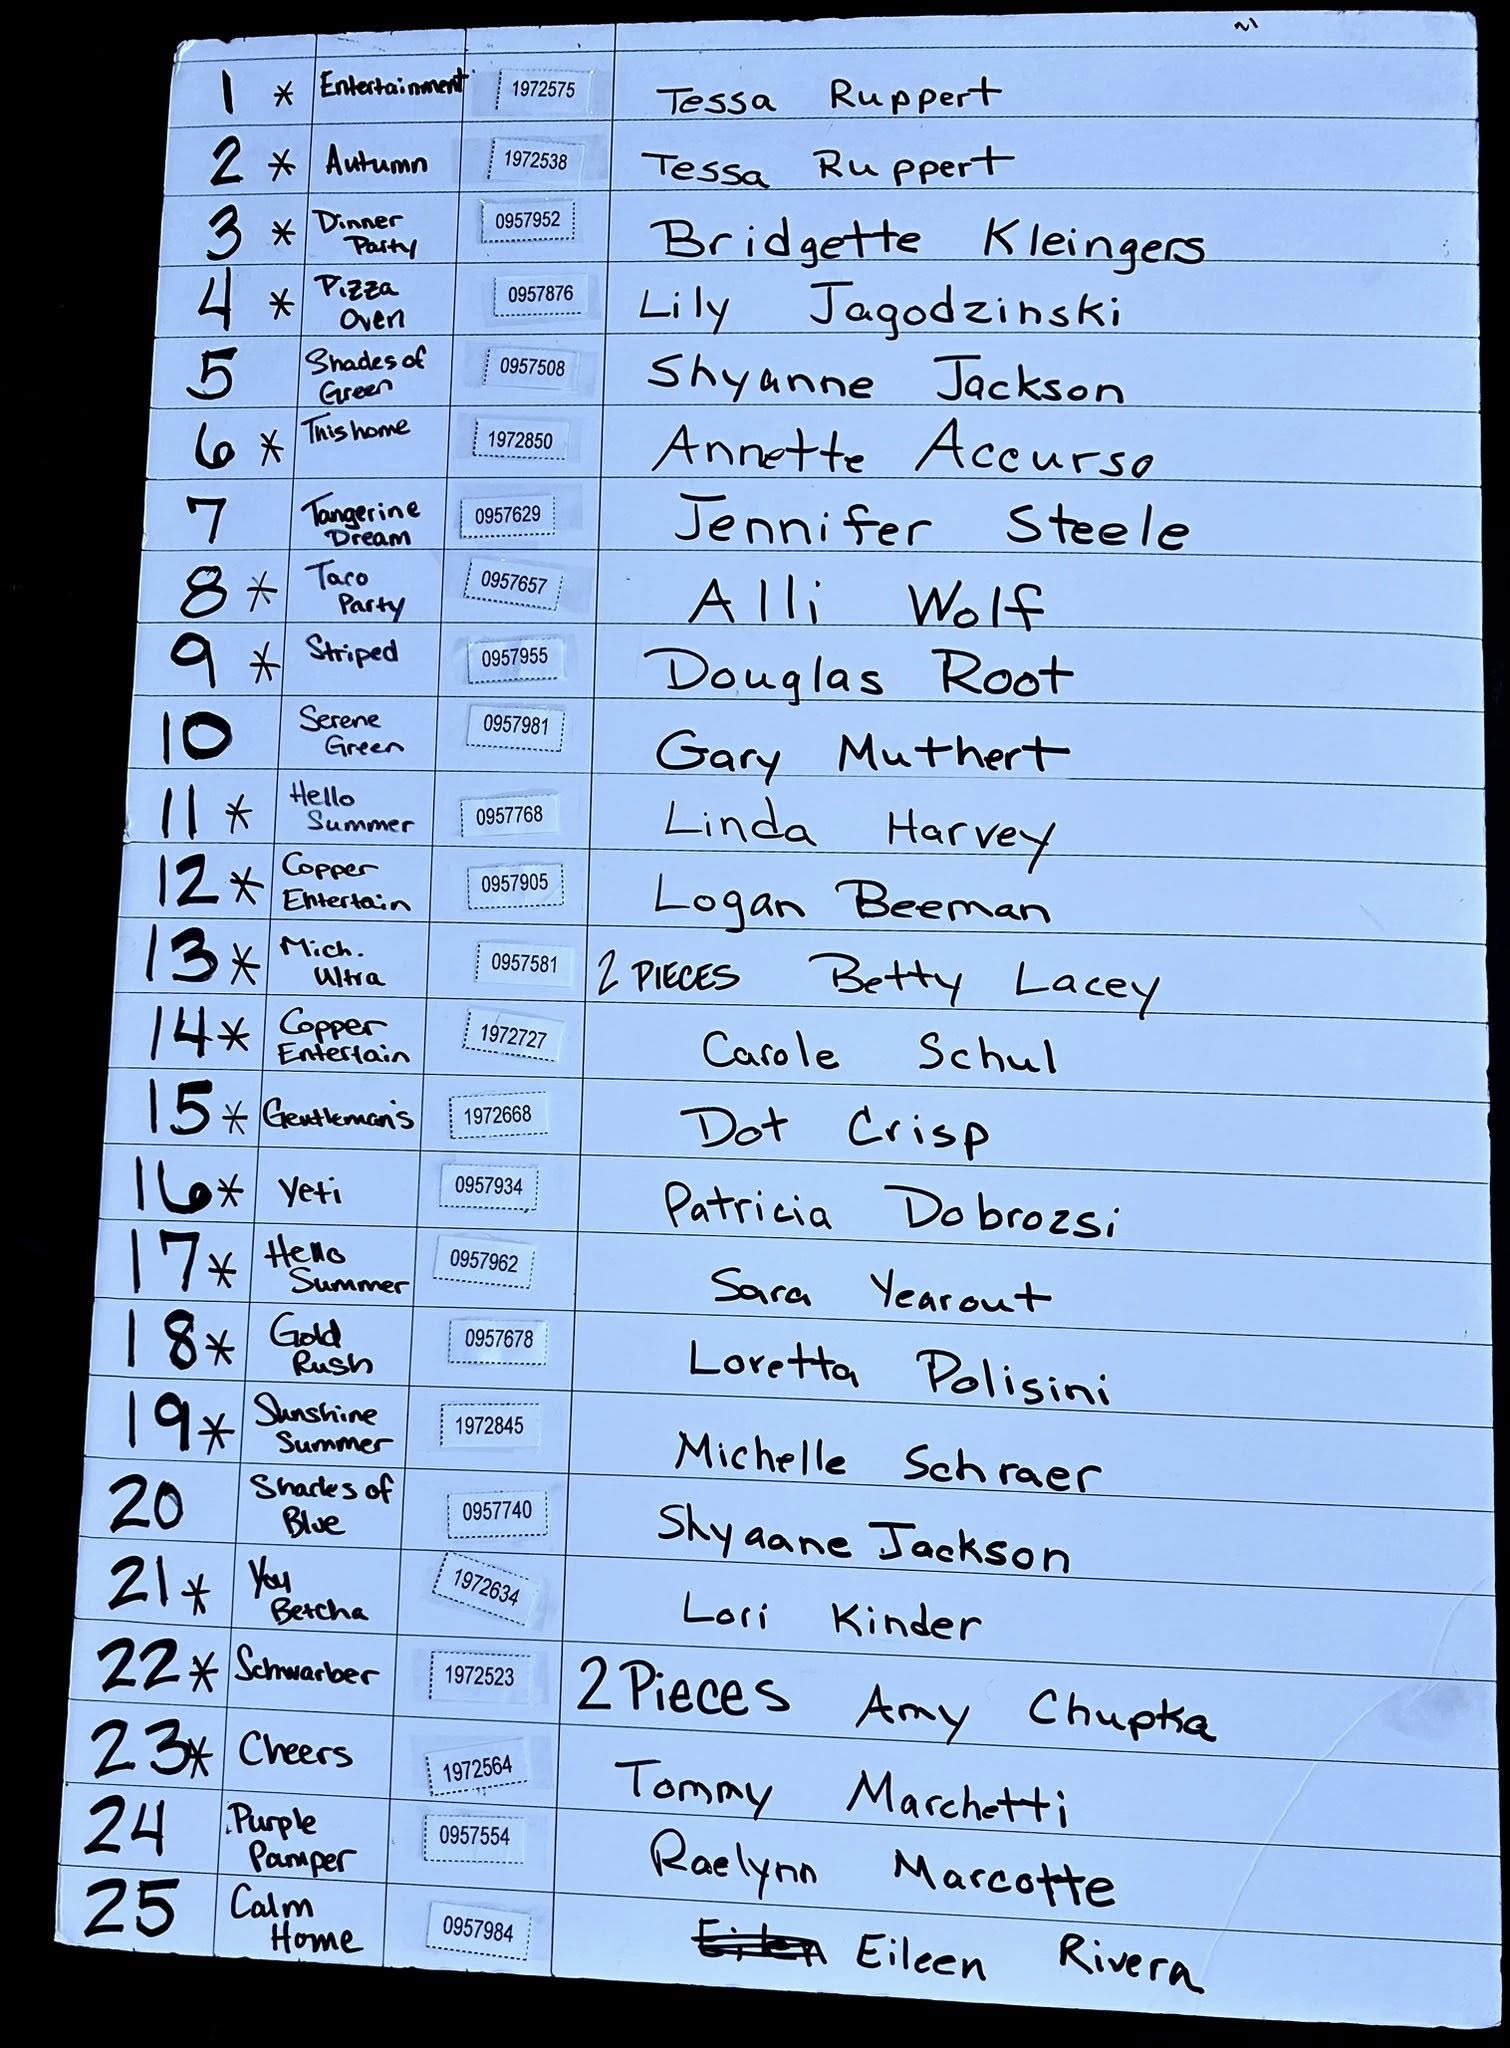 1 * Entertainment 1972575 Tessa Ruppert
2 * Autumn 1972538 Tessa Ruppert
3 * Dinner Party 0957952 Bridgette Kleingers
4 * Pizza Oven 0957876 Lily Jagodzinski
5 Shades of Green 0957508 Shyanne Jackson
6 * This home 1972850 Annette Accurso
7 Tangerine Dream 0957629 Jennifer Steele
8 * Taco Party 0957657 Alli Wolf
9 * Striped 0957955 Douglas Root
10 Serene Green 0957981 Gary Muthert
11 * Hello Summer 0957768 Linda Harvey
12 * Copper Entertain 0957905 Logan Beeman
13 * Mich. Ultra 0957581 2 PIECES Betty Lacey
14 * Copper Entertain 1972727 Carole Schul
15 * Gentleman's 1972668 Dot Crisp
16 * Yeti 0957934 Patricia Dobrozsi
17 * Hello Summer 0957962 Sara Yearout
18 * Gold Rush 0957678 Loretta Polisini
19 * Sunshine Summer 1972845 Michelle Schraer
20 Shades of Blue 0957740 Shyaane Jackson
21 * You Betcha 1972634 Lori Kinder
22 * Schwarber 1972523 2 Pieces Amy Chupka
23 * Cheers 1972564 Tommy Marchetti
24 Purple Pamper 0957554 Raelynn Marcotte
25 Calm Home 0957984 Eileen Rivera